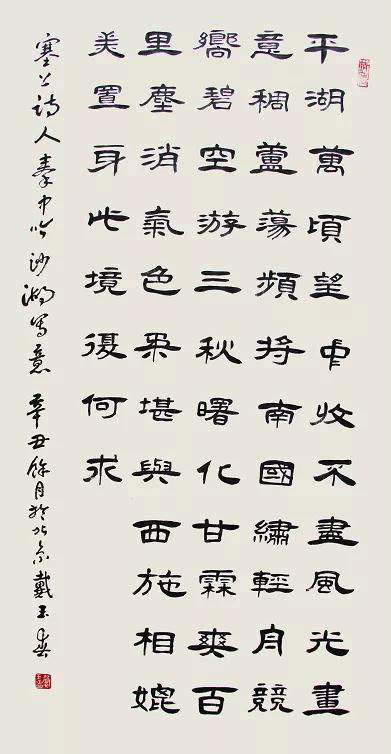 平湖萬頃望中收不盡風光畫
意稠蘆蕩頻將南國繡輕舟競
嚮碧空游三秋曙化甘霖爽百
里塵消氣色果堪與西施相媲
美置身此境復何求
塞上詩人秦中吟沙湖写意 辛丑餘月於北京戴玉春